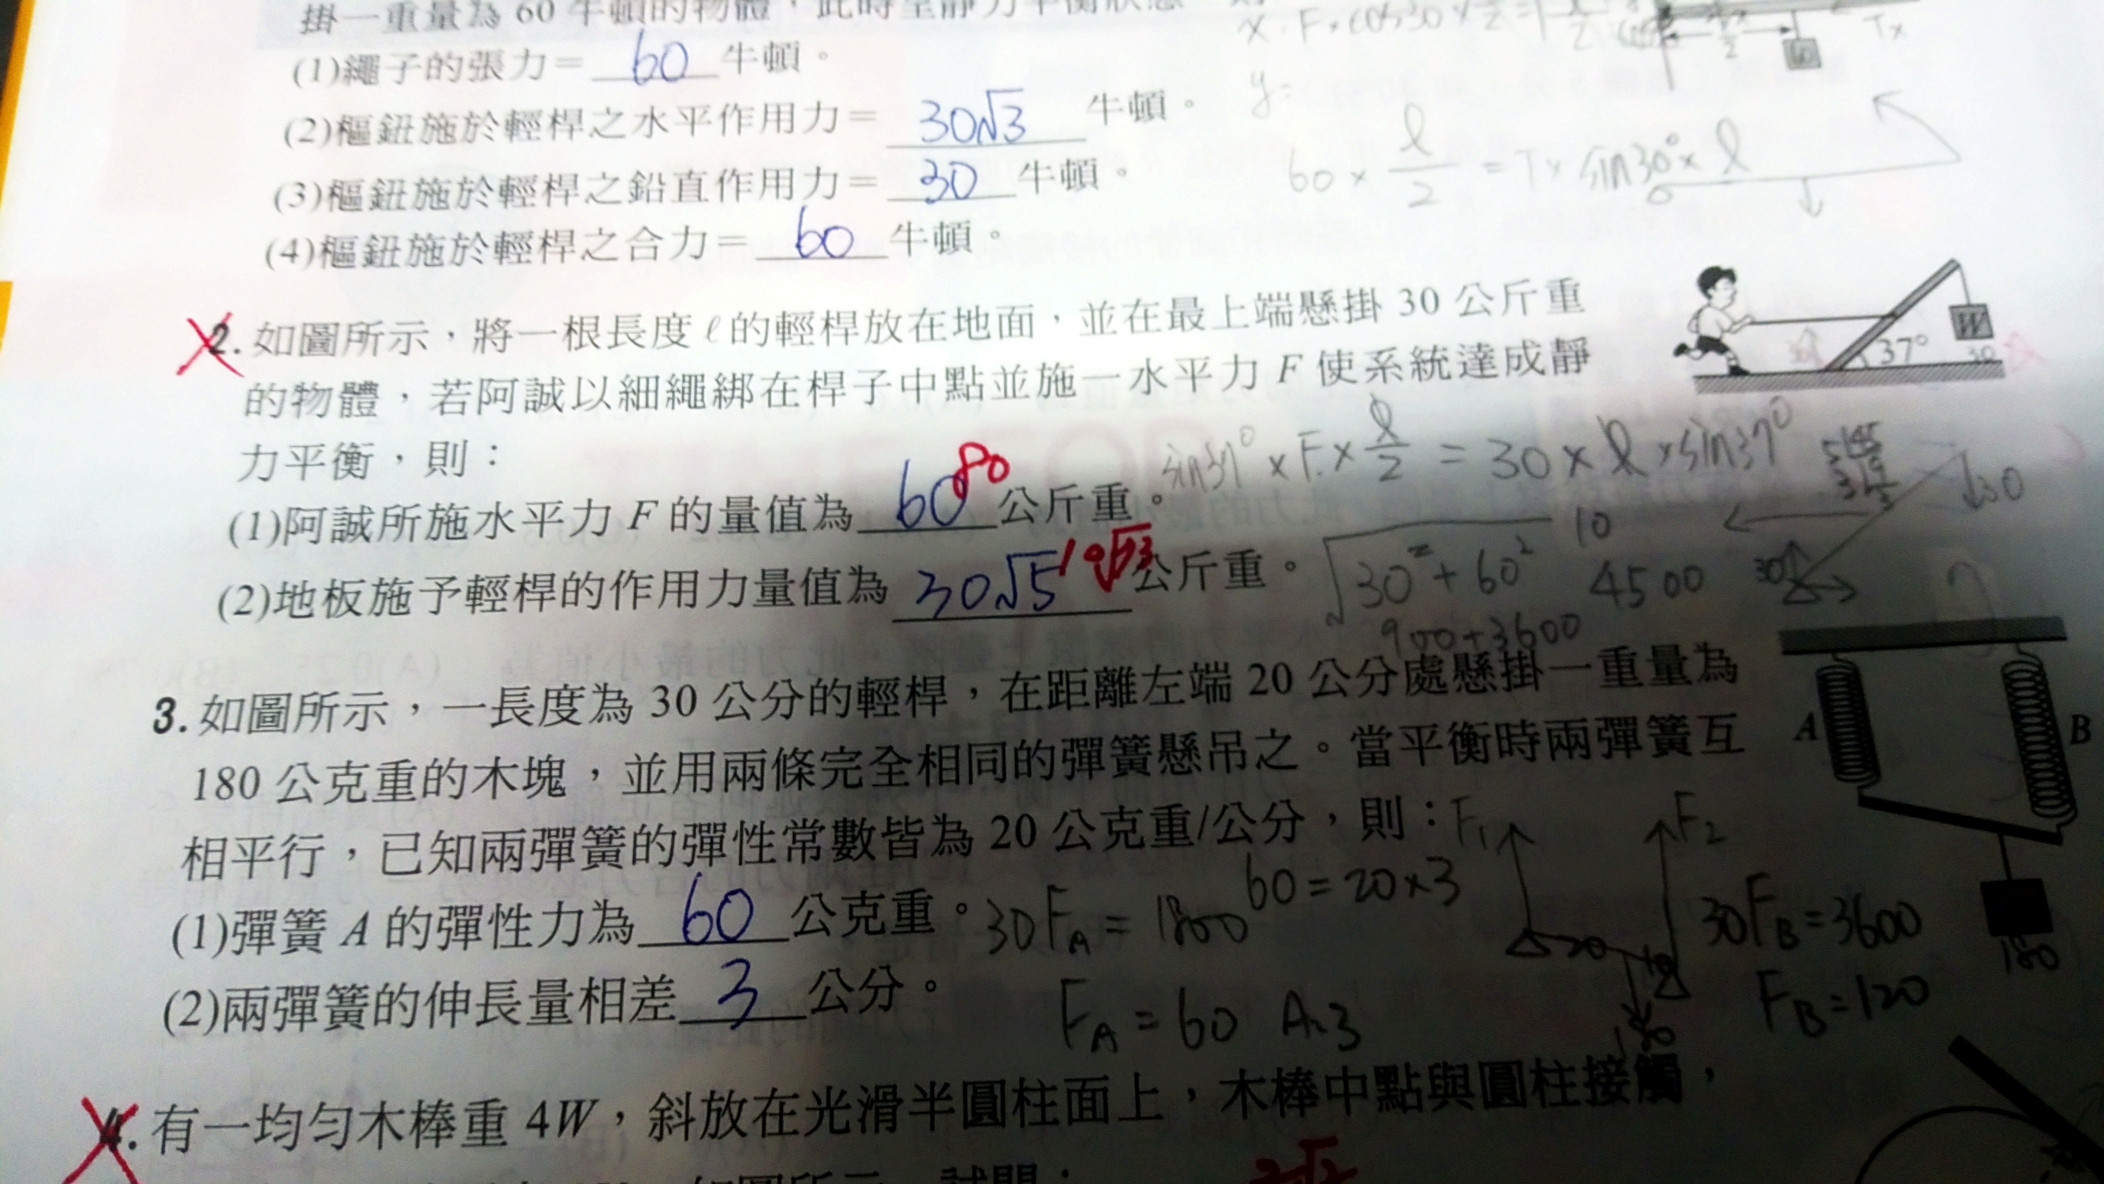 掛一重量為 60 牛頓的物體，此時呈靜力平衡狀態
(1)繩子的張力= 60 牛頓。
(2)樞鈕施於輕桿之水平作用力= 30√3 牛頓。
(3)樞鈕施於輕桿之鉛直作用力= 30 牛頓。
(4)樞鈕施於輕桿之合力= 60 牛頓。
60 × ℓ/2 = T × sin30° × ℓ
2. 如圖所示，將一根長度 ℓ 的輕桿放在地面，並在最上端懸掛 30 公斤重
的物體，若阿誠以細繩綁在桿子中點並施一水平力 F 使系統達成靜
力平衡，則：
W
37°
30
sin37° × F × ℓ/2 = 30 × ℓ × sin37°
(1)阿誠所施水平力 F 的量值為 60 80 公斤重。
(2)地板施予輕桿的作用力量值為 30√5 10√73 公斤重。
√30²+60²
10
4500
900+3600
30
30
3. 如圖所示，一長度為 30 公分的輕桿，在距離左端 20 公分處懸掛一重量為
180 公克重的木塊，並用兩條完全相同的彈簧懸吊之。當平衡時兩彈簧互
相平行，已知兩彈簧的彈性常數皆為 20 公克重/公分，則：
A
B
180
(1)彈簧 A 的彈性力為 60 公克重。
(2)兩彈簧的伸長量相差 3 公分。
60=20×3
30FA=1800
FA=60 A.3
F1
F2
20
10
180
30FB=3600
FB=120
4. 有一均勻木棒重 4W，斜放在光滑半圓柱面上，木棒中點與圓柱接觸，
如圖所示。試問：